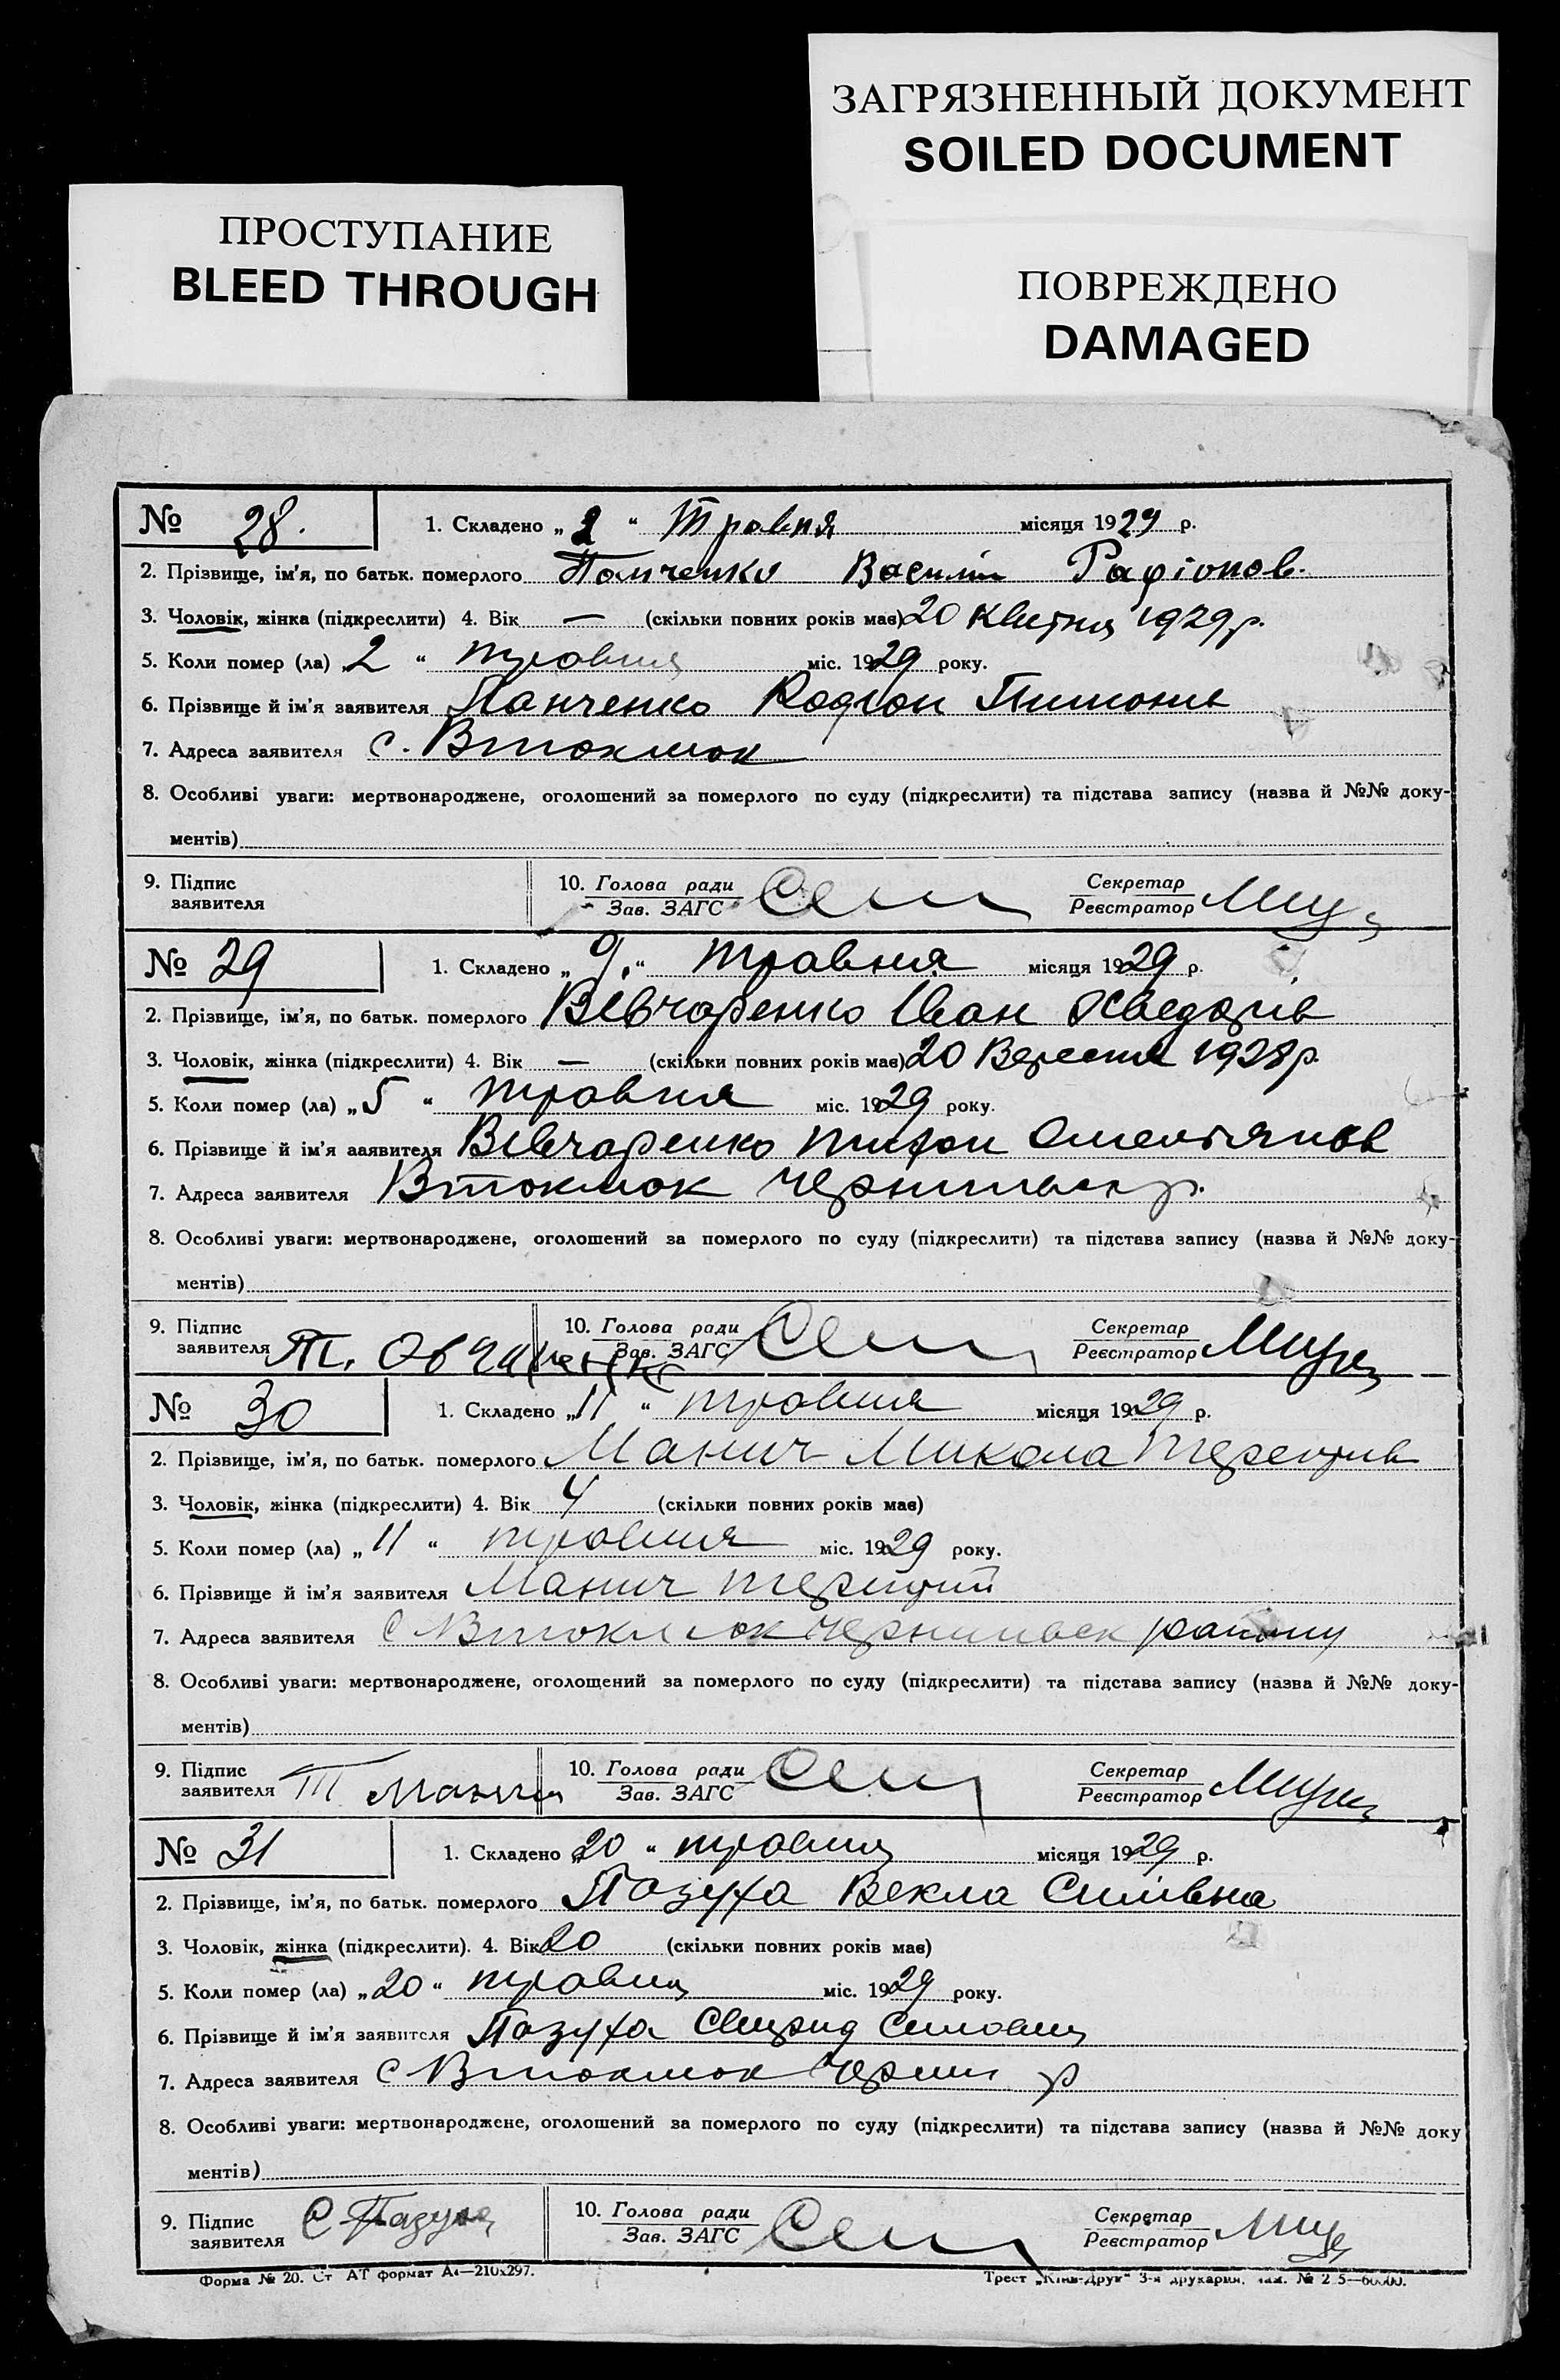 ЗАГРЯЗНЕННЫЙ ДОКУМЕНТ
SOILED DOCUMENT
ПРОСТУПАНИЕ
BLEED THROUGH
ПОВРЕЖДЕНО
DAMAGED
№ 28. 1. Складено „ 2 “ Травня місяця 1929 р.
2. Прізвище, ім'я, по батьк. померлого Панченко Василь
3. Чоловік, жінка (підкреслити) 4. Вік — (скільки повних років має) 20 Квітня 1929 р.
5. Коли помер (ла) „ 2 “ травня міс. 1929 року.
6. Прізвище й ім'я заявителя Панченко Родіон
7. Адреса заявителя с. Втокмок
8. Особливі уваги: мертвонароджене, оголошений за померлого по суду (підкреслити) та підстава запису (назва й №№ доку-
ментів)
9. Підпис заявителя 10. Голова ради Зав. ЗАГС Секретар Реєстратор
№ 29 1. Складено „ 9. “ травня місяця 1929 р.
2. Прізвище, ім'я, по батьк. померлого Вівчаренко Іван Хведорів
3. Чоловік, жінка (підкреслити) 4. Вік — (скільки повних років має) 20 Вересня 1928 р.
5. Коли помер (ла) „ 5 “ травня міс. 1929 року.
6. Прізвище й ім'я заявителя Вівчаренко Омелянов
7. Адреса заявителя Втокмок р.
8. Особливі уваги: мертвонароджене, оголошений за померлого по суду (підкреслити) та підстава запису (назва й №№ доку-
ментів)
9. Підпис заявителя Т. Овчаренко 10. Голова ради Зав. ЗАГС Секретар Реєстратор
№ 30 1. Складено „ 11 “ травня місяця 1929 р.
2. Прізвище, ім'я, по батьк. померлого Манич Микола
3. Чоловік, жінка (підкреслити) 4. Вік 4 (скільки повних років має)
5. Коли помер (ла) „ 11 “ травня міс. 1929 року.
6. Прізвище й ім'я заявителя Манич
7. Адреса заявителя с Втокмок району
8. Особливі уваги: мертвонароджене, оголошений за померлого по суду (підкреслити) та підстава запису (назва й №№ доку-
ментів)
9. Підпис заявителя Т Манич 10. Голова ради Зав. ЗАГС Секретар Реєстратор
№ 31 1. Складено „ 20 “ травня місяця 1929 р.
2. Прізвище, ім'я, по батьк. померлого Пазуха Векла Силівна
3. Чоловік, жінка (підкреслити). 4. Вік 20 (скільки повних років має)
5. Коли помер (ла) „ 20 “ травня міс. 1929 року.
6. Прізвище й ім'я заявителя Пазуха Свирид
7. Адреса заявителя с Втокмок р
8. Особливі уваги: мертвонароджене, оголошений за померлого по суду (підкреслити) та підстава запису (назва й №№ доку
ментів)
9. Підпис заявителя С Пазуха 10. Голова ради Зав. ЗАГС Секретар Реєстратор
Форма № 20. Ст АТ формат А4—210x297. Трест „Київ-Друк“ 3-я друкарня.